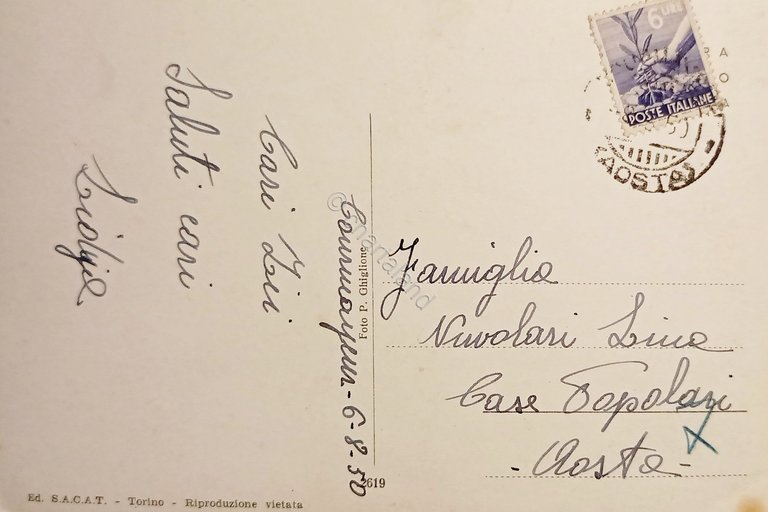 Courmayeur - 6-8-50
Cari Zii
Saluti cari
Famiglia
Nuvolari Lina
Case Popolari
- Aosta -
6 LIRE
POSTE ITALIANE
(AOSTA)
50
Foto P. Ghiglione
2619
Ed. S.A.C.A.T. - Torino - Riproduzione vietata